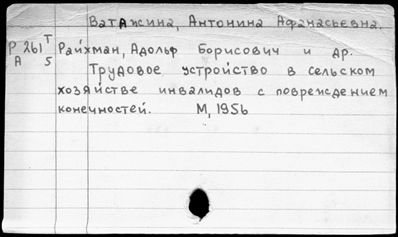 Ватажина, Антонина Афанасьевна.
Р 261 Т Райхман, Адольф Борисович и др.
А 5 Трудовое устройство в сельском
хозяйстве инвалидов с повреждением
конечностей. М, 1956